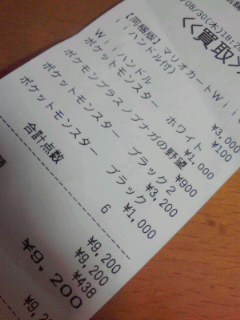 08/30(木)18:2
<<買取
【同梱版】マリオカートWi
iハンドル付) ¥3,000
Wiiハンドル ¥100
ポケットモンスター ホワイト
¥1,000
ポケモンプラスノブナガの野望 ¥900
ポケットモンスター ブラック2
¥3,200
ポケットモンスター ブラック
¥1,000
合計点数 6
¥9,200
¥9,200
¥438
¥9,200